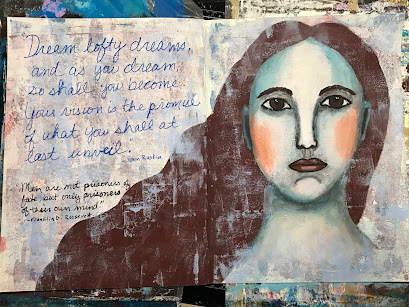 "Dream lofty dreams,
and as you dream,
so shall you become.
Your vision is the promise
of what you shall at
last unveil."
John Ruskin
"Men are not prisoners of
fate but only prisoners
of their own mind"
-Franklin D. Roosevelt